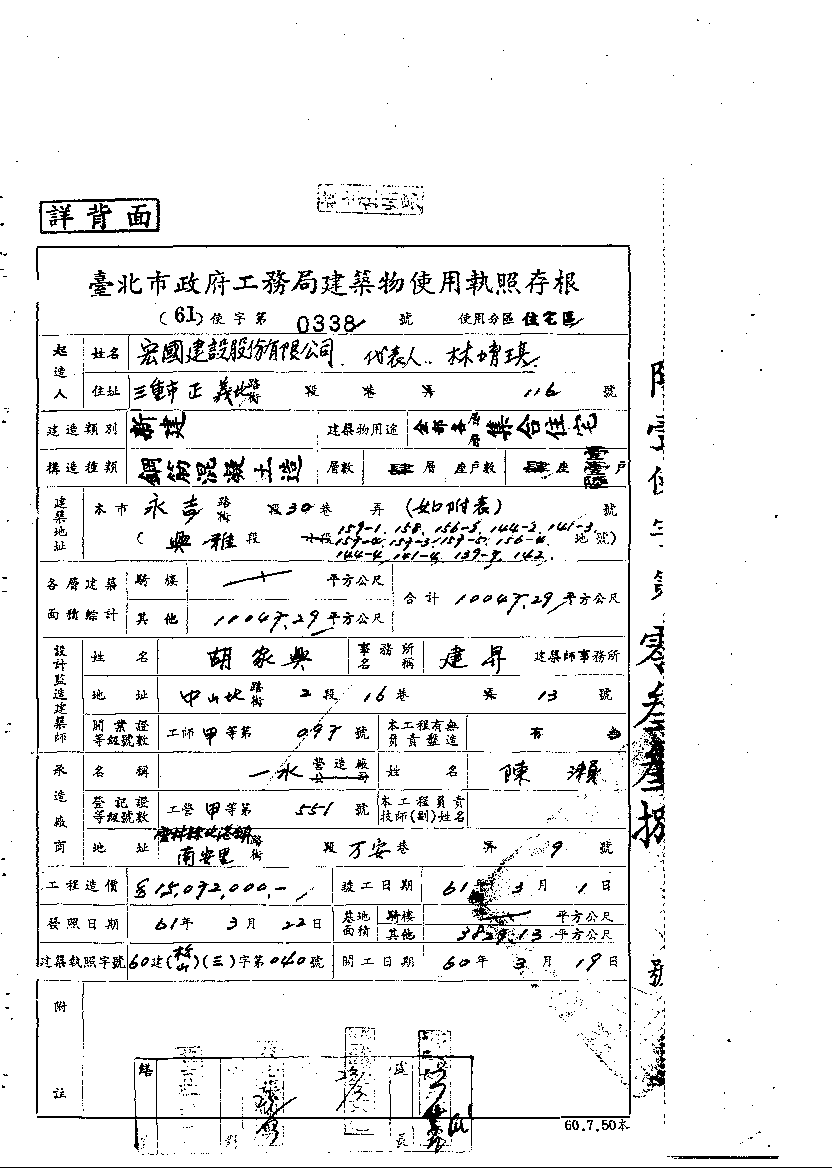 詳背面
臺北市政府工務局建築物使用執照存根
(61)使字第 0338 號 使用分區 住宅區
起造人 姓名 宏國建設股份有限公司. 代表人..林堉琪
住址 三重市正義北路街 段 巷 弄 116 號
建造類別 新建 建築物用途 全部各層 集合住宅
構造種類 鋼筋混凝土造 層數 肆層 座戶數 肆座 戶
建築地址 本市 永吉路街 段 30 巷 弄 (如附表) 號
159-1, 158, 156-5, 144-2, 141-3
( 興雅段 小段 159-4, 159-3, 159-5, 156-4 地號)
144-4, 141-4, 139-9, 142
各層建築面積總計 騎樓 平方公尺
其他 10047.29 平方公尺 合計 10047.29 平方公尺
設計監造建築師 姓名 胡家興 事務所名稱 建昇 建築師事務所
地址 中山北路街 2 段 16 巷 弄 13 號
開業證等級號數 工師甲等第 097 號 本工程有無負責監造 有
承造廠商 名稱 一永 營造廠公司 姓名 陳瀨
登記證等級號數 工營甲等第 551 號 本工程負責技師(副)姓名
地址 雲林縣北港鎮南安里 路街 段 万安巷 弄 9 號
工程造價 $15,092,000.- 竣工日期 61年 3月 1日
發照日期 61年 3月 22日 基地面積 騎樓 平方公尺
其他 3829.13 平方公尺
建築執照字號 60建(松山)(三)字第040號 開工日期 60年 3月 19日
附註
60.7.50本
零叁叁捌 號